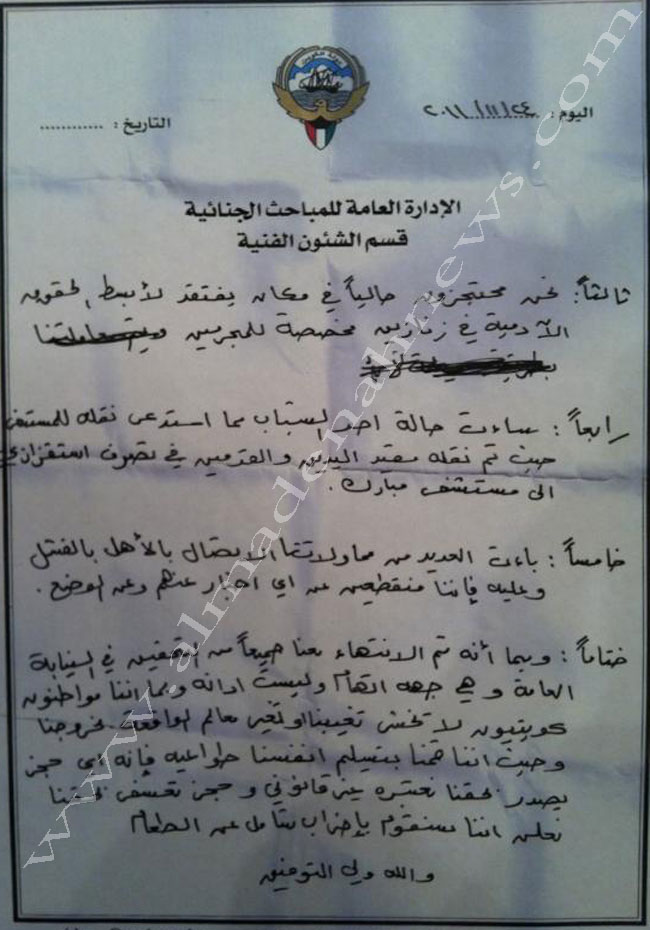 دولة الكويت
اليوم: ٢٠١١/١١/٢٤
التاريخ: ............
الإدارة العامة للمباحث الجنائية
قسم الشئون الفنية
ثالثاً: نحن محتجزون حالياً في مكان يفتقد لأبسط الحقوق
الآدمية في زنازين مخصصة للمجرمين
رابعاً: ساءت حالة احد الشباب مما استدعى نقله للمستشفى
حيث تم نقله مقيد اليدين والقدمين في تصرف استفزازي
الى مستشفى مبارك.
خامساً: باءت العديد من محاولاتنا الاتصال بالأهل بالفشل
وعليه فإننا منقطعين عن اي اخبار عنهم وعن الوضع.
ختاماً: وبما أنه تم الانتهاء معنا جميعاً من التحقيق في النيابة
العامة وهي جهة اتهام وليست ادانة وبما اننا مواطنون
كويتيون لا تخشى تغيبنا او تغير معالم الواقعة بخروجنا
وحيث اننا قمنا بتسليم انفسنا طواعيه فإنه أي حجز
يصدر بحقنا نعتبره غير قانوني وحجز تعسفي بحقنا
نعلن اننا سنقوم بإضراب شامل عن الطعام
والله ولي التوفيق
www.almadenahnews.com